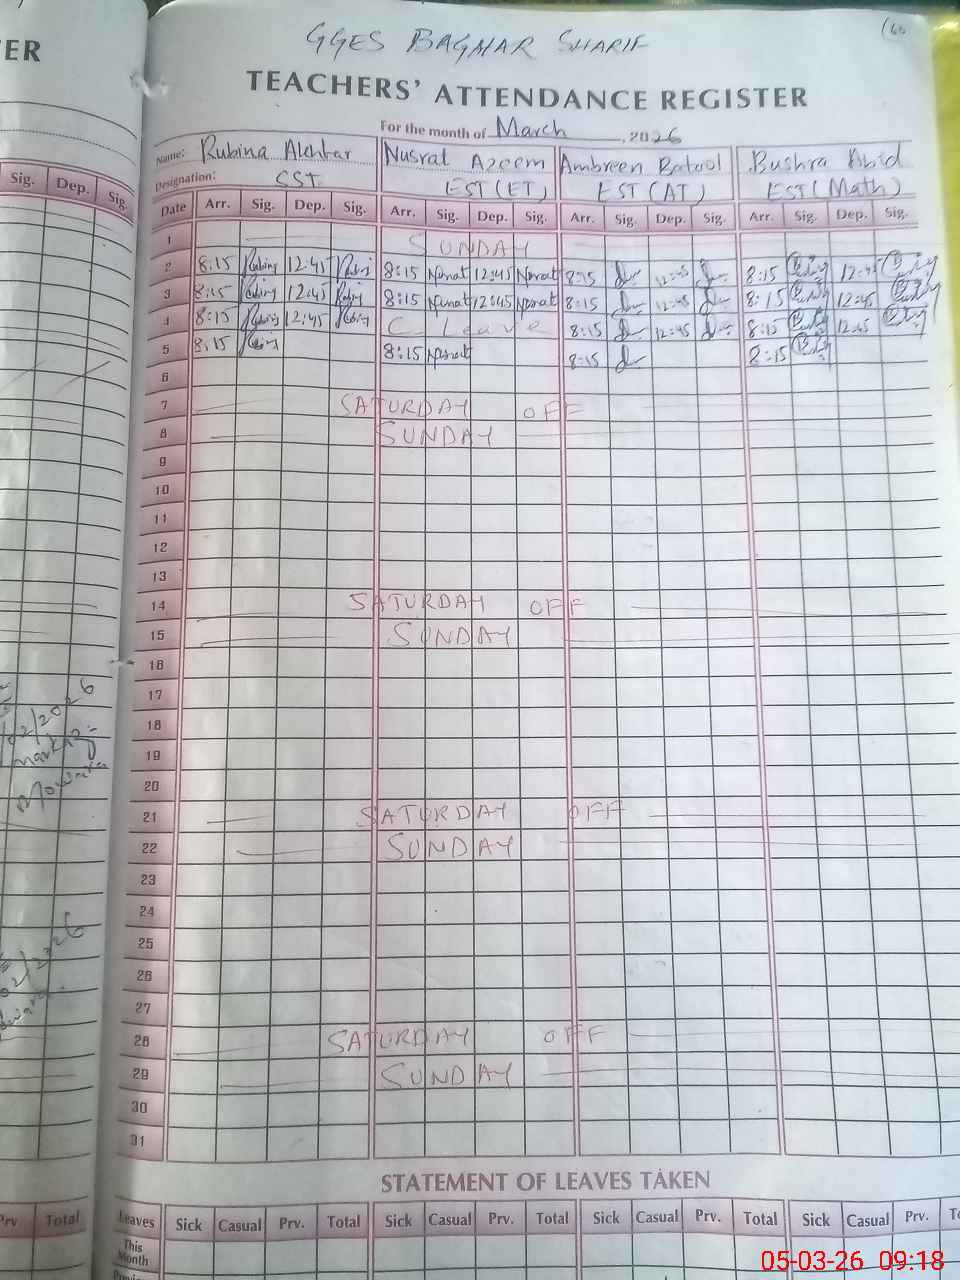 GGES BAGHAR SHARIF
ER
TEACHERS' ATTENDANCE REGISTER
For the month of March, 2026
Name: Rubina Akhtar Nusrat Azeem Ambreen Batool Bushra Abid
Designation: SST EST (ET) EST (AT) EST (Math)
Sig. Dep. Sig.
Date Arr. Sig. Dep. Sig. Arr. Sig. Dep. Sig. Arr. Sig. Dep. Sig. Arr. Sig. Dep. Sig.
1 SUNDAY
2 8:15 12:45 8:15 Nusrat 12:45 Nusrat 8:15 12:45 8:15 12:45
3 8:15 12:45 8:15 Nusrat 12:45 Nusrat 8:15 12:45 8:15 12:45
4 8:15 12:45 C. Leave 8:15 12:45 8:15 12:45
5 8:15 8:15 Nusrat 8:15 8:15
6
7 SATURDAY OFF
8 SUNDAY
9
10
11
12
13
14 SATURDAY OFF
15 SUNDAY
16
17
18
19
20
21 SATURDAY OFF
22 SUNDAY
23
24
25
26
27
28 SATURDAY OFF
29 SUNDAY
30
31
STATEMENT OF LEAVES TAKEN
Prv Total
Leaves Sick Casual Prv. Total Sick Casual Prv. Total Sick Casual Prv. Total Sick Casual Prv.
This
Month
05-03-26 09:18